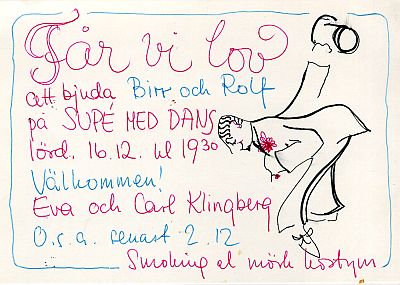 Får vi lov
att bjuda Birr och Rolf
på SUPÉ MED DANS
lörd. 16.12. kl 19³⁰
Välkommen!
Eva och Carl Klingberg
O.s.a. senast 2.12
Smoking el mörk kostym